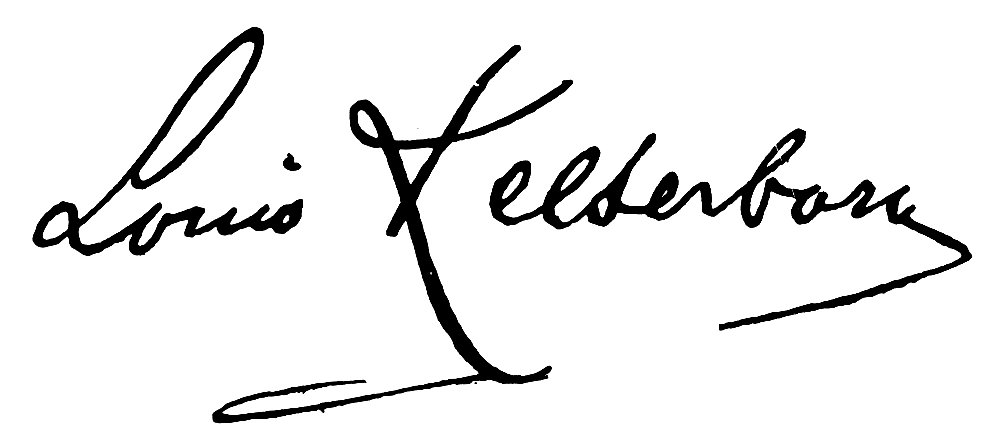 Louis Kelterborn